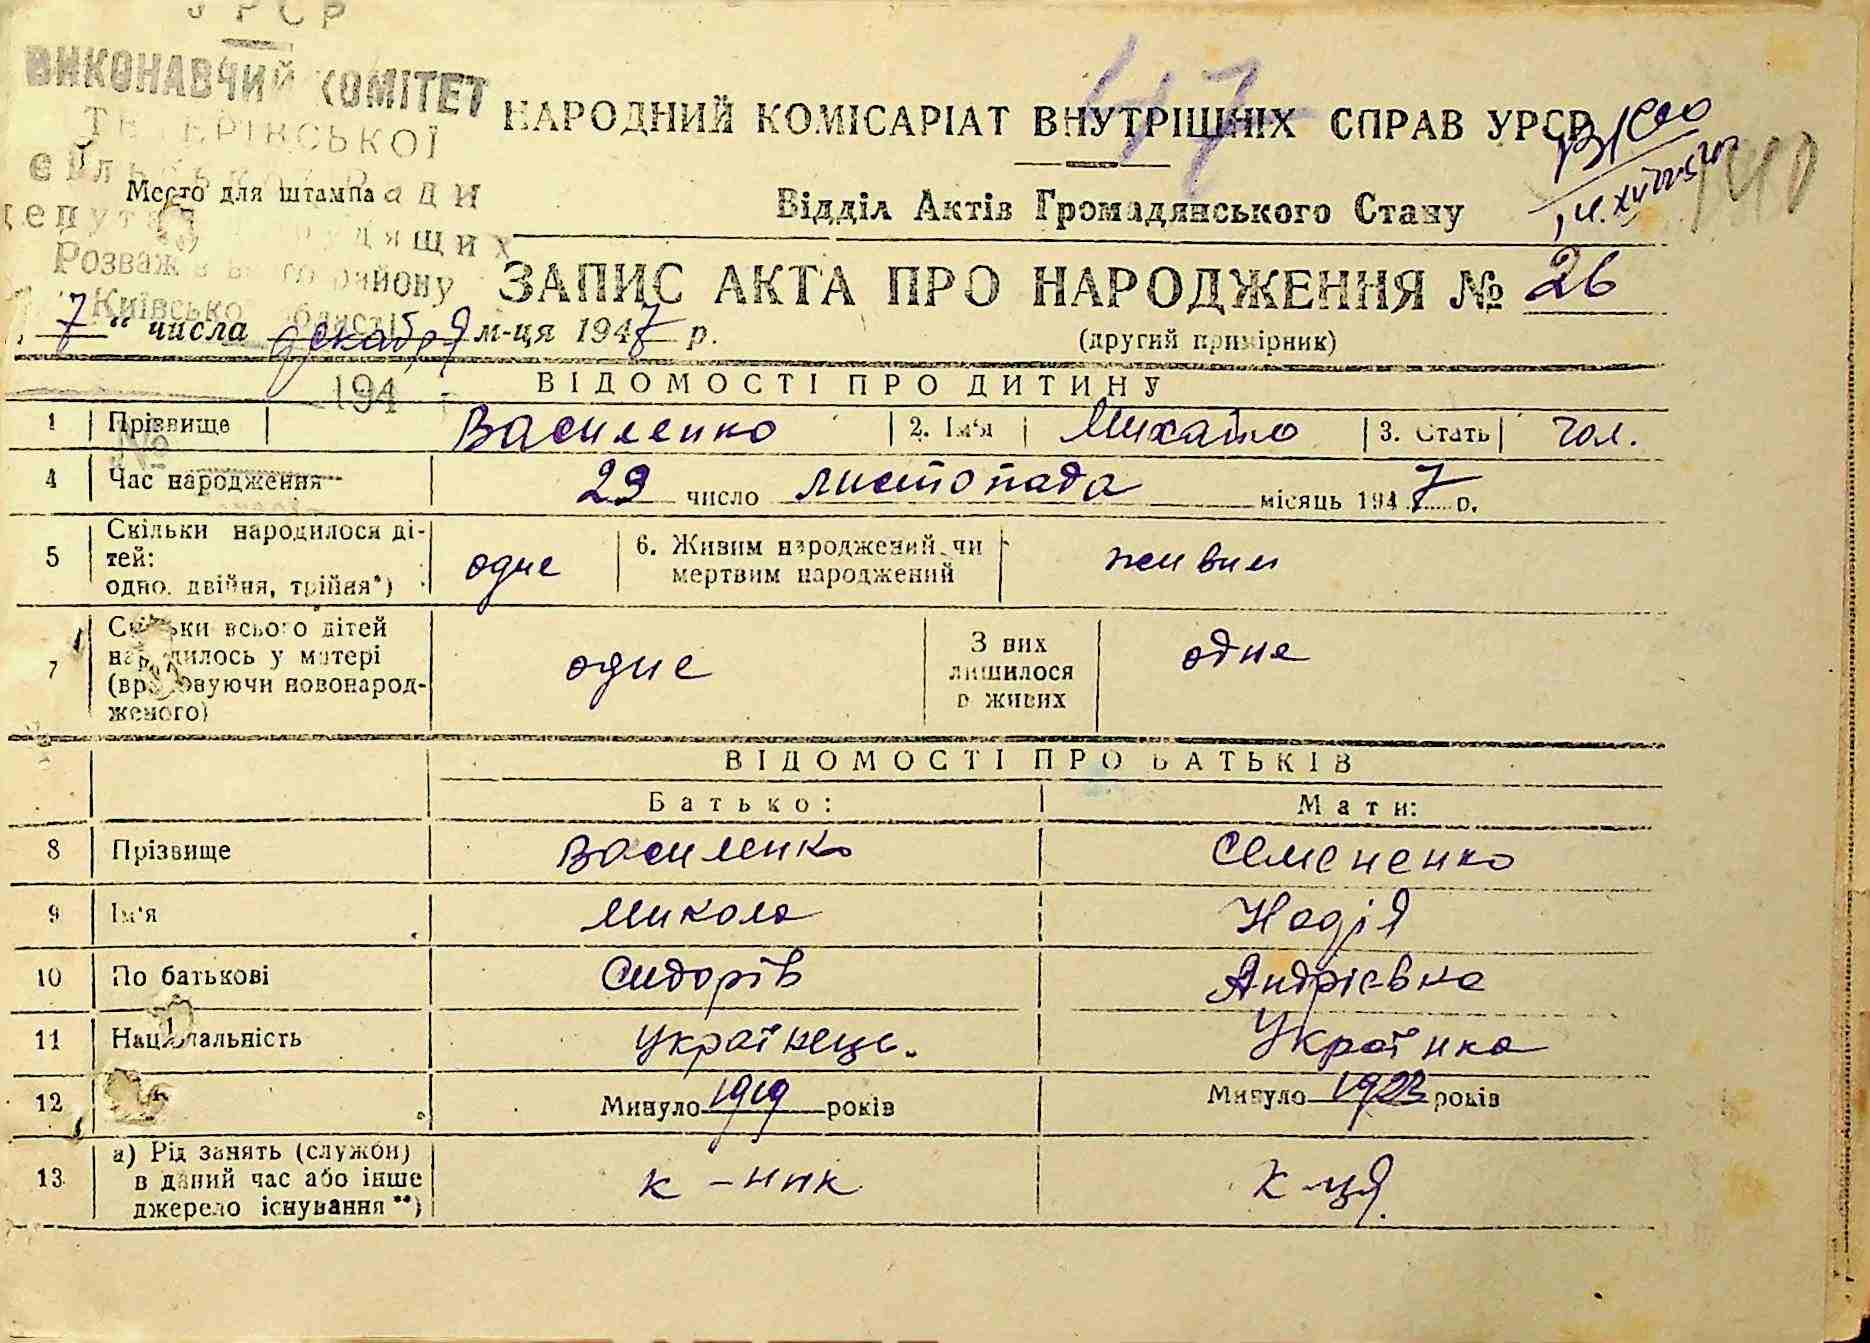 УРСР
ВИКОНАВЧИЙ КОМІТЕТ
47
НАРОДНИЙ КОМІСАРІАТ ВНУТРІШНІХ СПРАВ УРСР
140
Место для штампа
Відділ Актів Громадянського Стану
району
ЗАПИС АКТА ПРО НАРОДЖЕННЯ № 26
„7“ числа декабря м-ця 1947 р.
(другий примірник)
194
ВІДОМОСТІ ПРО ДИТИНУ
1 Прізвище Василенко 2. Ім'я Михайло 3. Стать чол.
№
4 Час народження 29 число листопада місяць 1947 р.
5 Скільки народилося ді-
тей:
одно, двійня, трійня*) одне 6. Живим народжений чи
мертвим народжений живим
7 Скільки всього дітей
народилось у матері
(враховуючи новонарод-
женого) одне З них
лишилося
в живих одне
ВІДОМОСТІ ПРО БАТЬКІВ
Батько: Мати:
8 Прізвище Василенко Семененко
9 Ім'я Микола Надія
10 По батькові Сидорів Андрієвна
11 Національність Українець. Українка
12 Минуло 1919 років Минуло 1923 років
13 а) Рід занять (служби)
в даний час або інше
джерело існування**) к-ник к-ця.